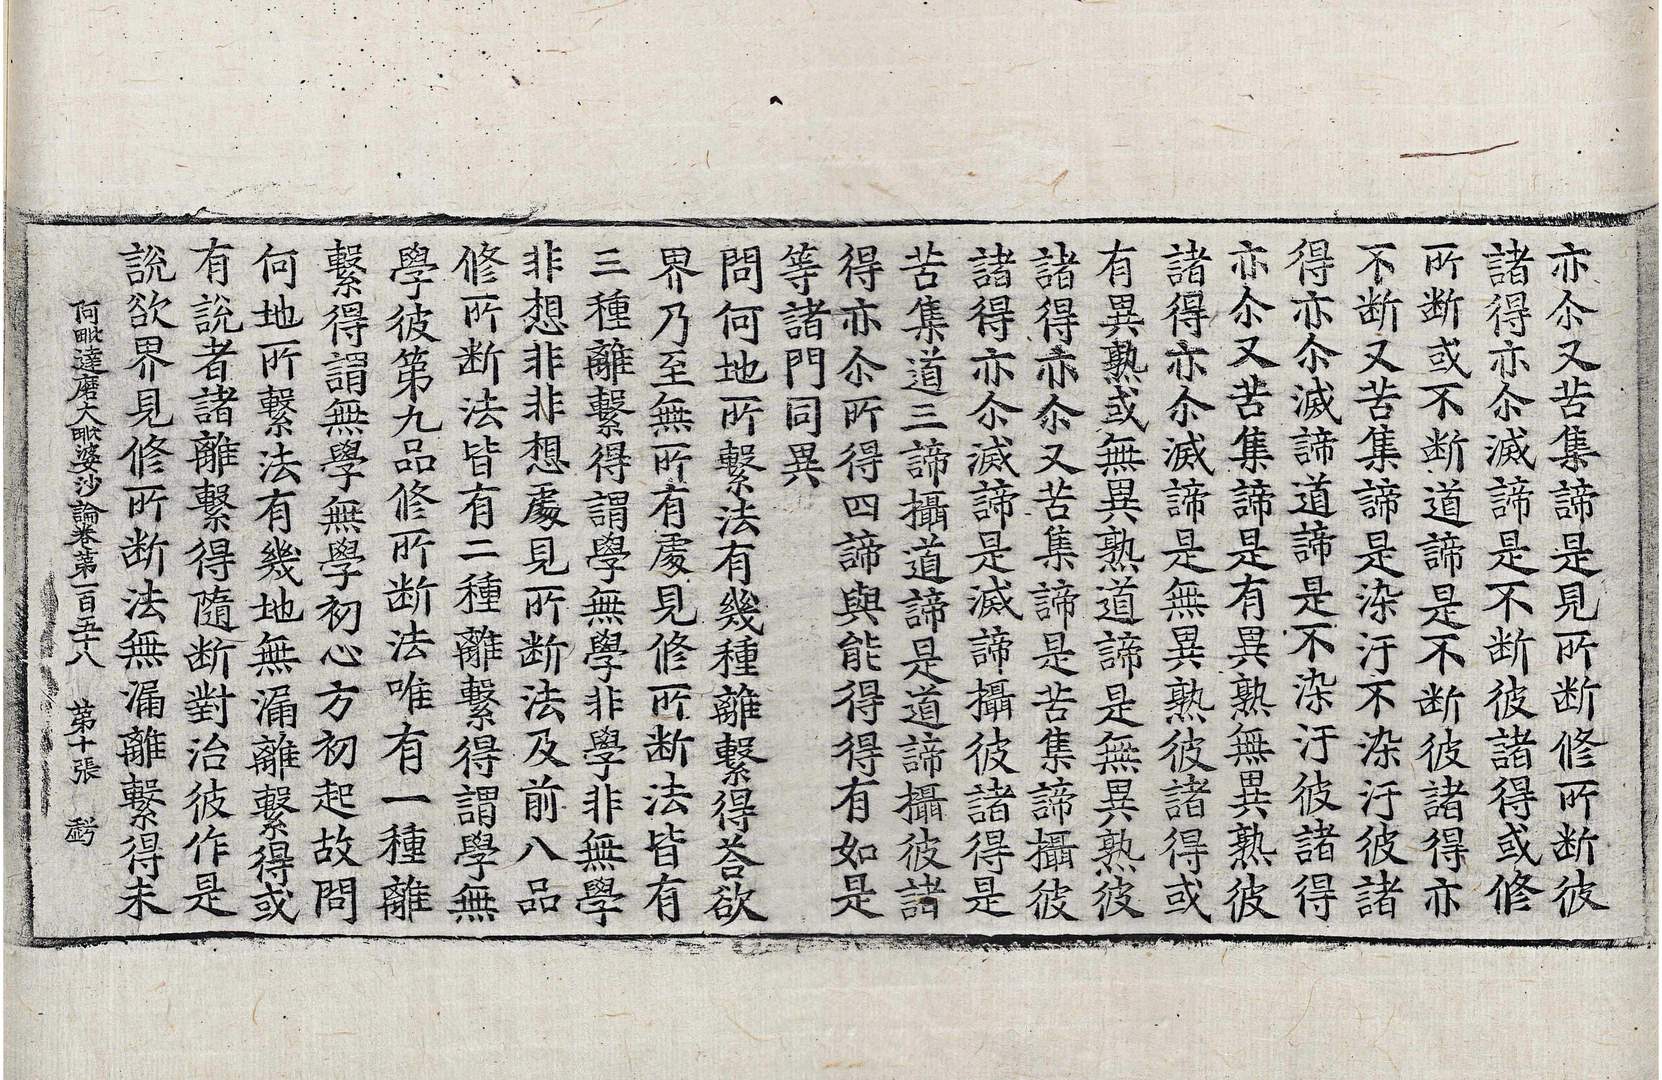 亦尒又苦集諦是見所断修所断彼
諸得亦尒滅諦是不断彼諸得或修
所断或不断道諦是不断彼諸得亦
不断又苦集諦是染汙不染汙彼諸
得亦尒滅諦道諦是不染汙彼諸得
亦尒又苦集諦是有異熟無異熟彼
諸得亦尒滅諦是無異熟彼諸得或
有異熟或無異熟道諦是無異熟彼
諸得亦尒又苦集諦是苦集諦攝彼
諸得亦尒滅諦是滅諦攝彼諸得是
苦集道三諦攝道諦是道諦攝彼諸
得亦尒所得四諦與能得得有如是
等諸門同異
問何地所繫法有幾種離繫得荅欲
界乃至無所有處見修所断法皆有
三種離繫得謂學無學非學非無學
非想非非想處見所断法及前八品
修所断法皆有二種離繫得謂學無
學彼第九品修所断法唯有一種離
繫得謂無學無學初心方初起故問
何地所繫法有幾地無漏離繫得或
有說者諸離繫得隨断對治彼作是
說欲界見修所断法無漏離繫得未
阿毗達磨大毗婆沙論卷第一百五十八 第十張 虧